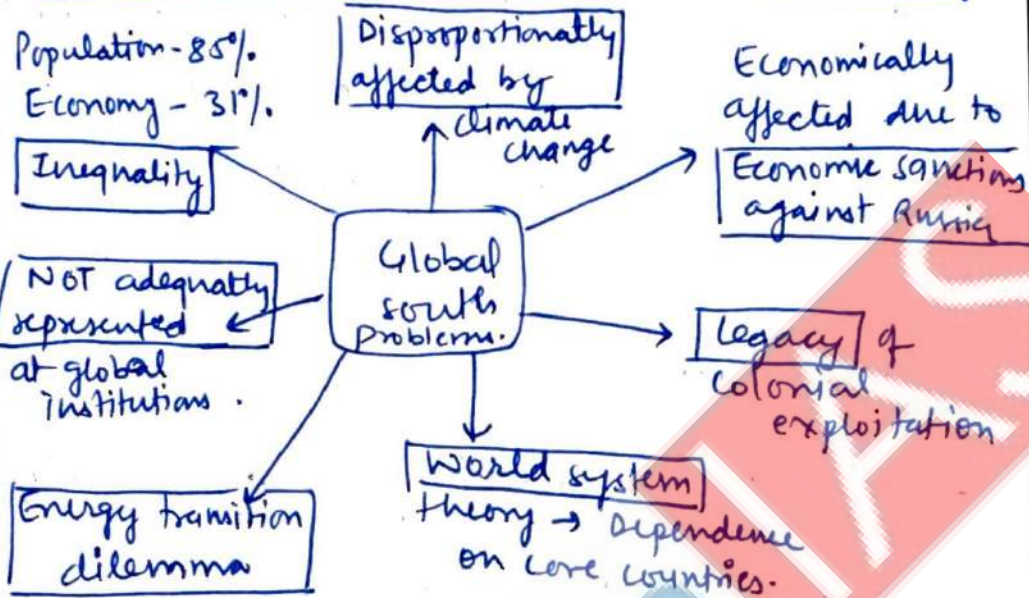 Population - 85%.
Economy - 31%.
Inequality
Disproportionatly
affected by
climate
change
Economically
affected due to
Economic sanctions
against Russia
Global
south
problems.
NOT adequatly
represented
at global
institutions.
Legacy of
colonial
exploitation
Energy transition
dilemma
World system
theory → Dependence
on core countries.
IAS